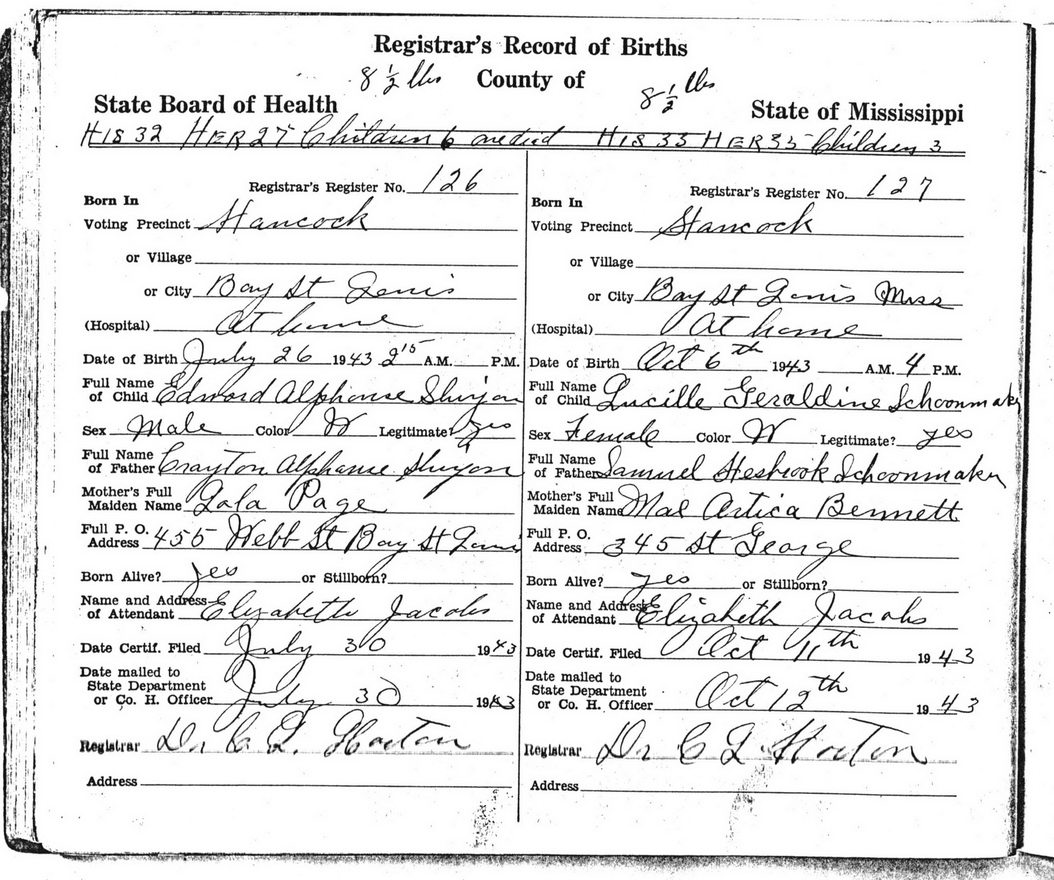 Registrar's Record of Births
8 1/2 lbs County of 8 1/2 lbs
State Board of Health State of Mississippi
HIS 32 HER 27 Children 6 one died HIS 33 HER 35 Children 3
Registrar's Register No. 126
Born In
Voting Precinct Hancock
or Village
or City Bay St Louis
(Hospital) At home
Date of Birth July 26 1943 2 15 A.M. P.M.
Full Name
of Child Edward Alphonse
Sex Male Color W Legitimate? yes
Full Name
of Father Crayton Alphonse
Mother's Full
Maiden Name Page
Full P. O.
Address 455 Webb St Bay St Louis
Born Alive? yes or Stillborn?
Name and Address
of Attendant Elizabeth Jacobs
Date Certif. Filed July 30 1943
Date mailed to
State Department
or Co. H. Officer July 30 1943
Registrar Dr C L Horton
Address
Registrar's Register No. 127
Born In
Voting Precinct Hancock
or Village
or City Bay St Louis Miss
(Hospital) At home
Date of Birth Oct 6th 1943 A.M. 4 P.M.
Full Name
of Child Lucille Geraldine Schoonmaker
Sex Female Color W Legitimate? yes
Full Name
of Father Samuel Schoonmaker
Mother's Full
Maiden Name Mae Artica Bennett
Full P. O.
Address 345 St George
Born Alive? yes or Stillborn?
Name and Address
of Attendant Elizabeth Jacobs
Date Certif. Filed Oct 11th 1943
Date mailed to
State Department
or Co. H. Officer Oct 12th 1943
Registrar Dr C L Horton
Address